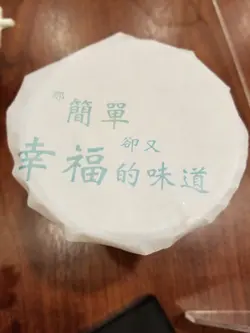 簡單
卻又
幸福的味道